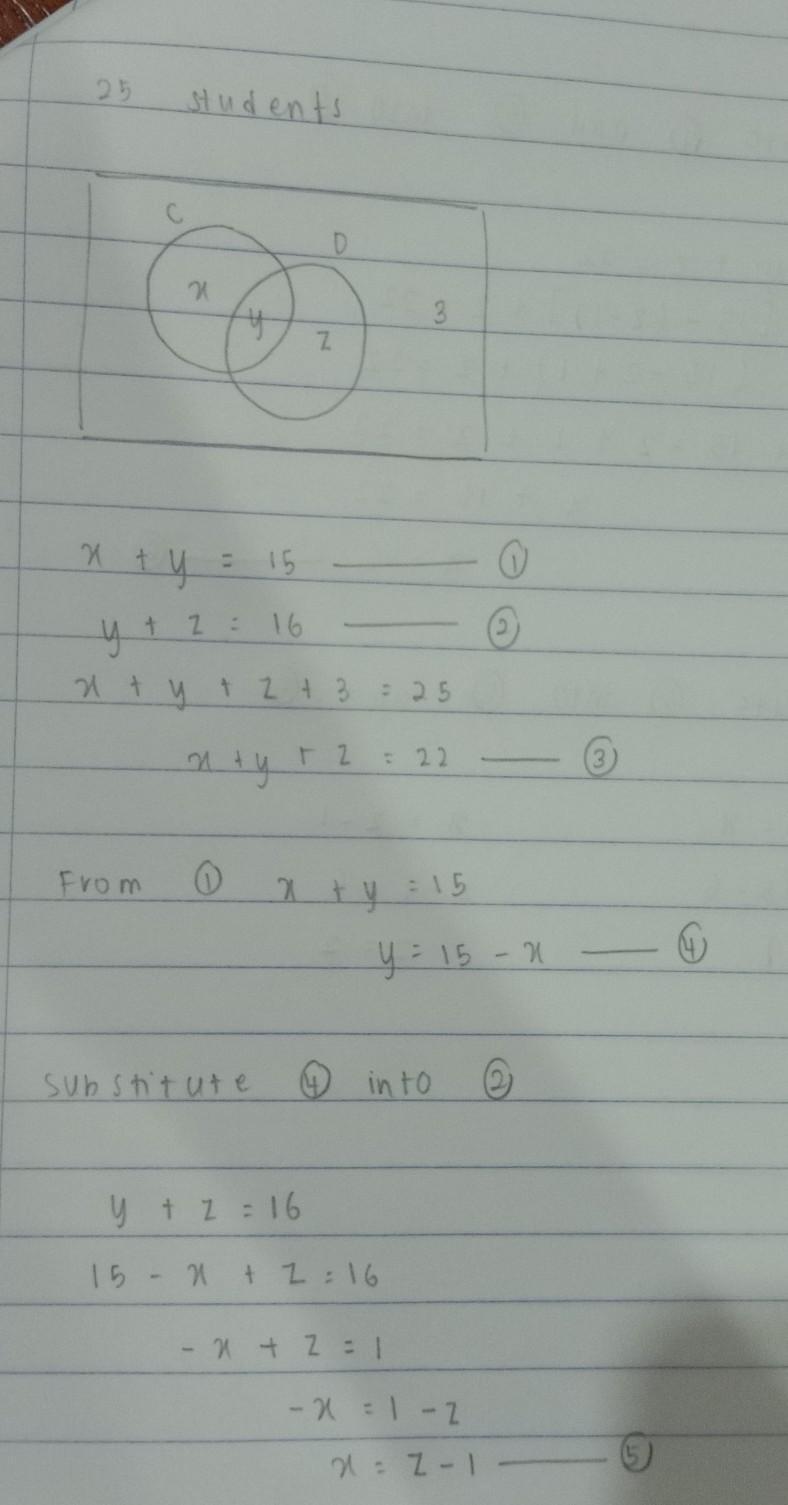 25 students
C
D
x
y
z
3
x + y = 15 ——— ①
y + z = 16 ——— ②
x + y + z + 3 = 25
x + y + z = 22 —— ③
From ① x + y = 15
y = 15 - x —— ④
substitute ④ into ②
y + z = 16
15 - x + z = 16
- x + z = 1
- x = 1 - z
x = z - 1 ——— ⑤